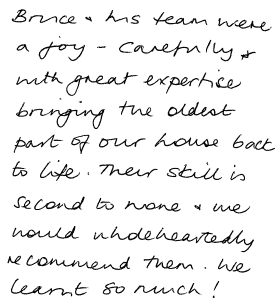 Bruce & his team were
a joy - carefully &
with great expertise
bringing the oldest
part of our house back
to life. Their skill is
second to none & we
would wholeheartedly
recommend them. We
learnt so much!